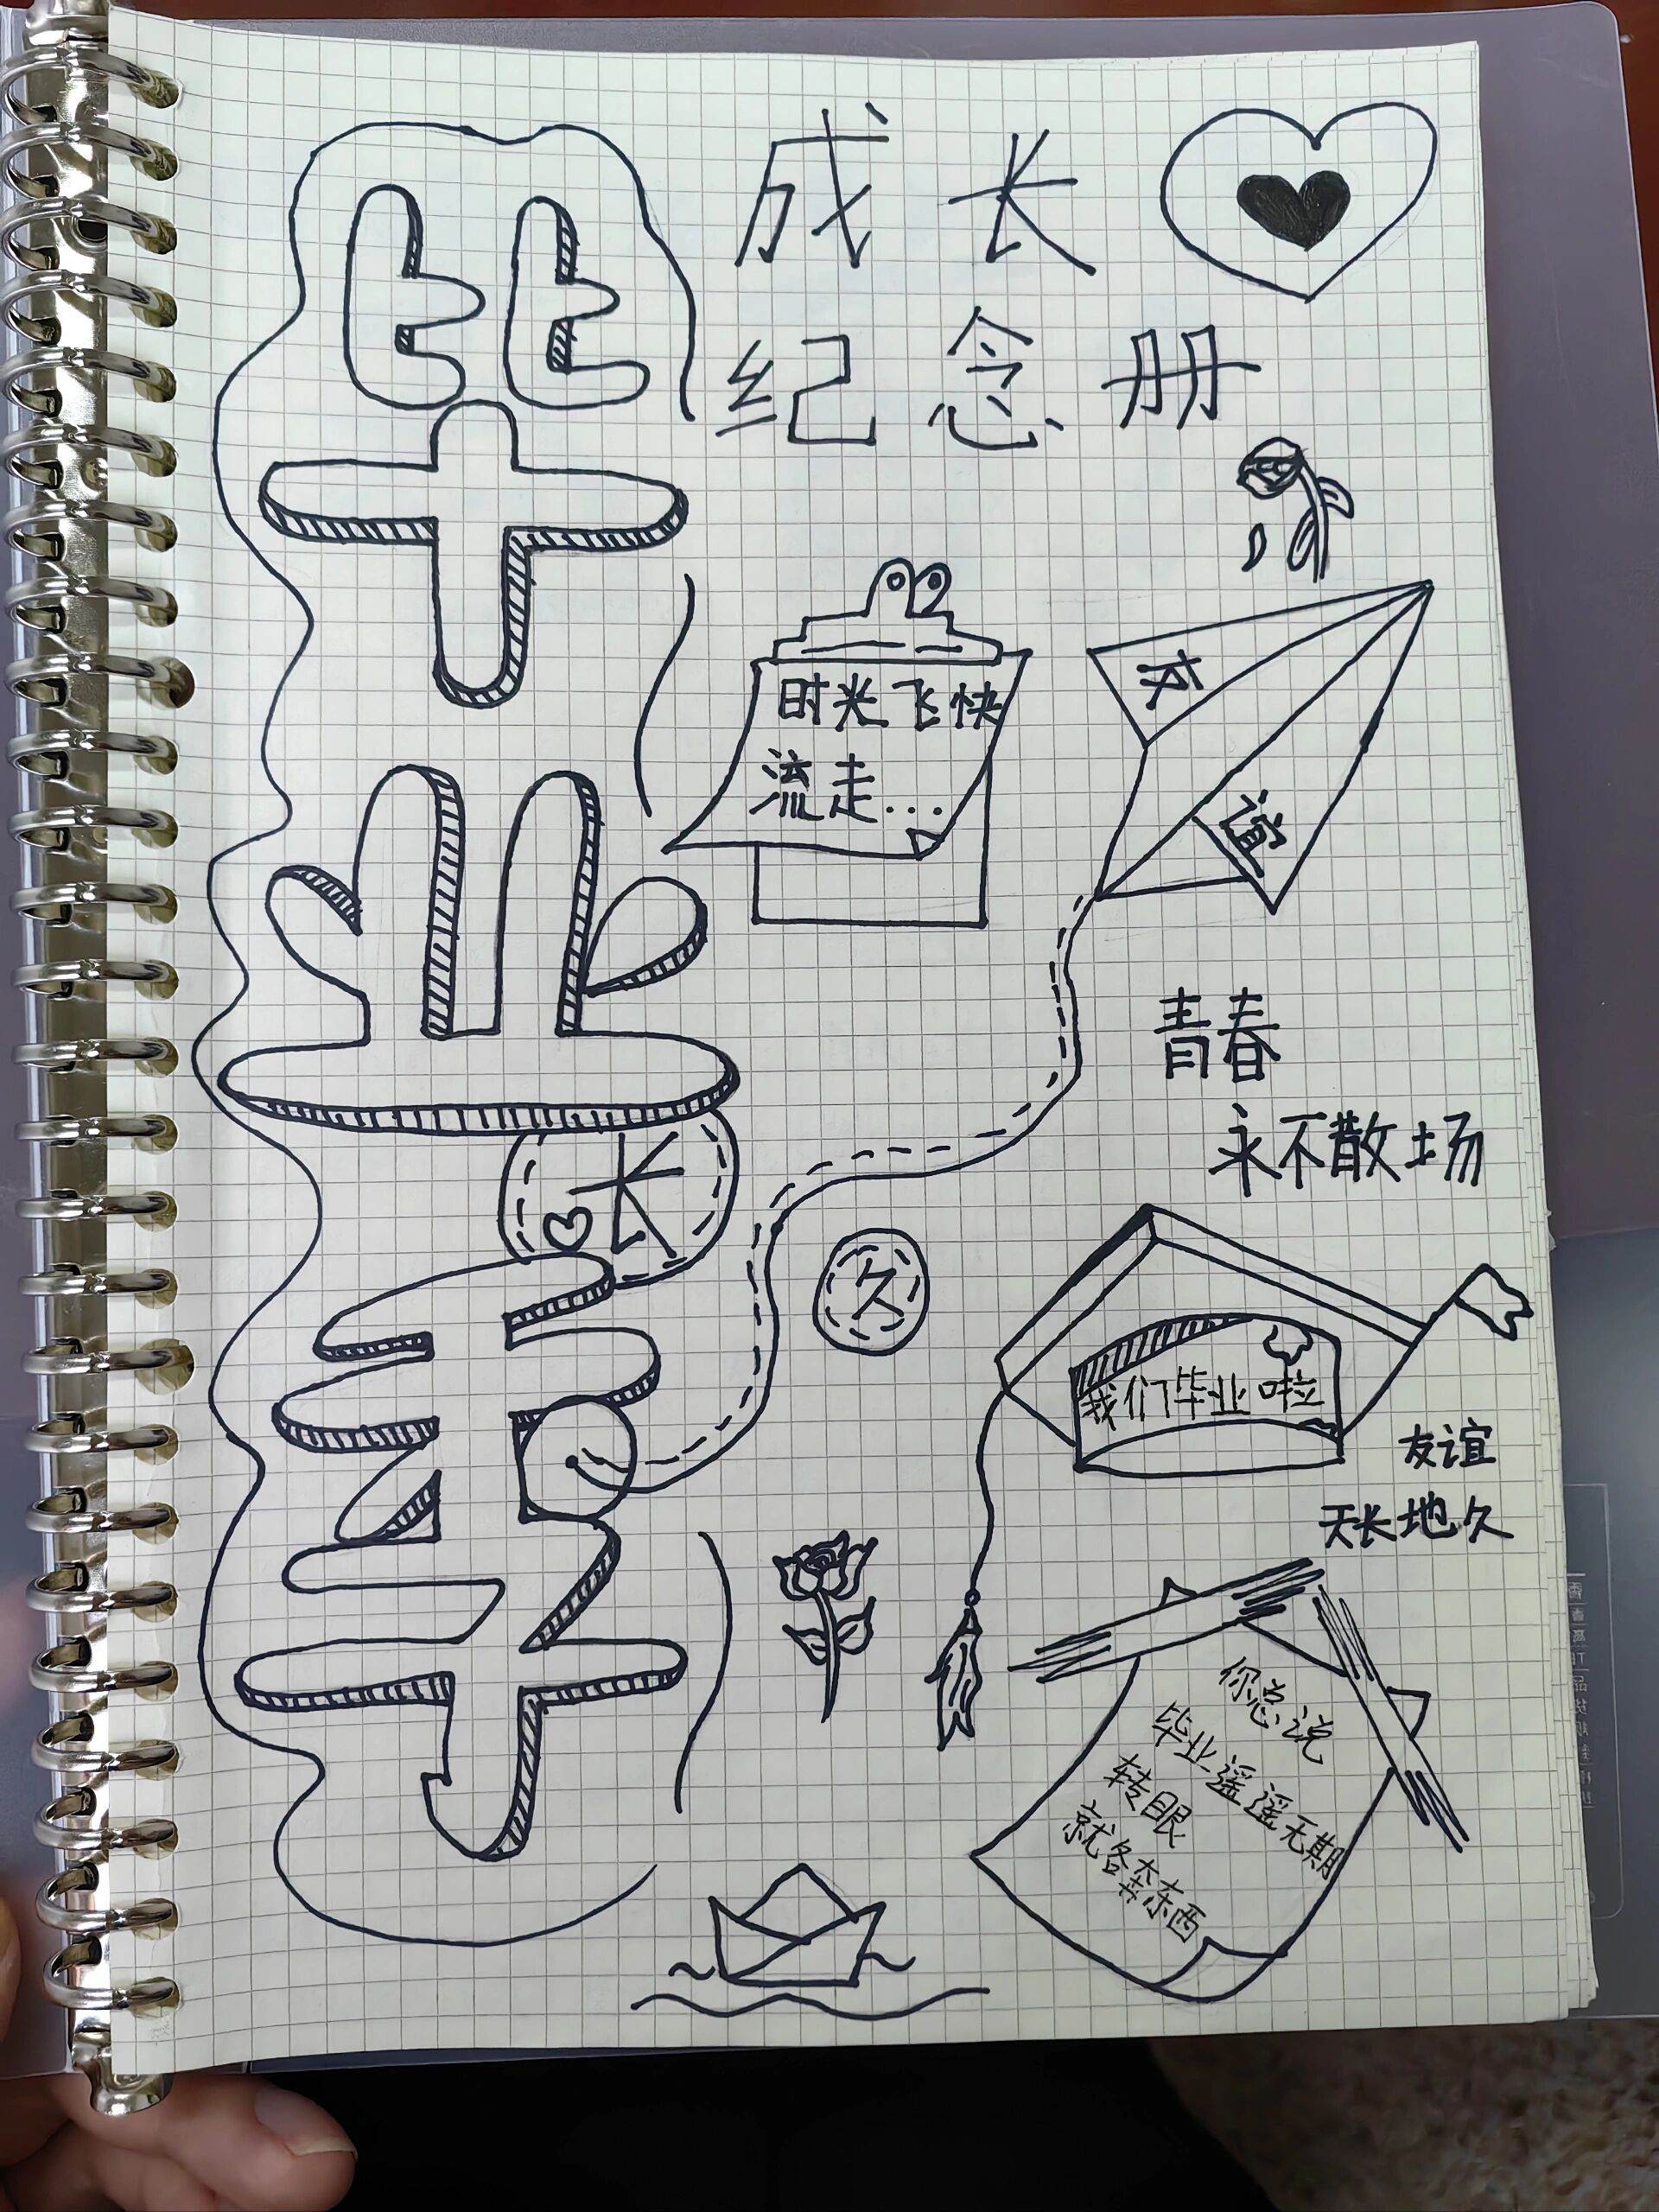 毕业季
成长
纪念册
时光飞快
流走...
友
谊
青春
永不散场
长
久
我们毕业啦
友谊
天长地久
你总说
毕业遥遥无期
转眼
就各奔东西